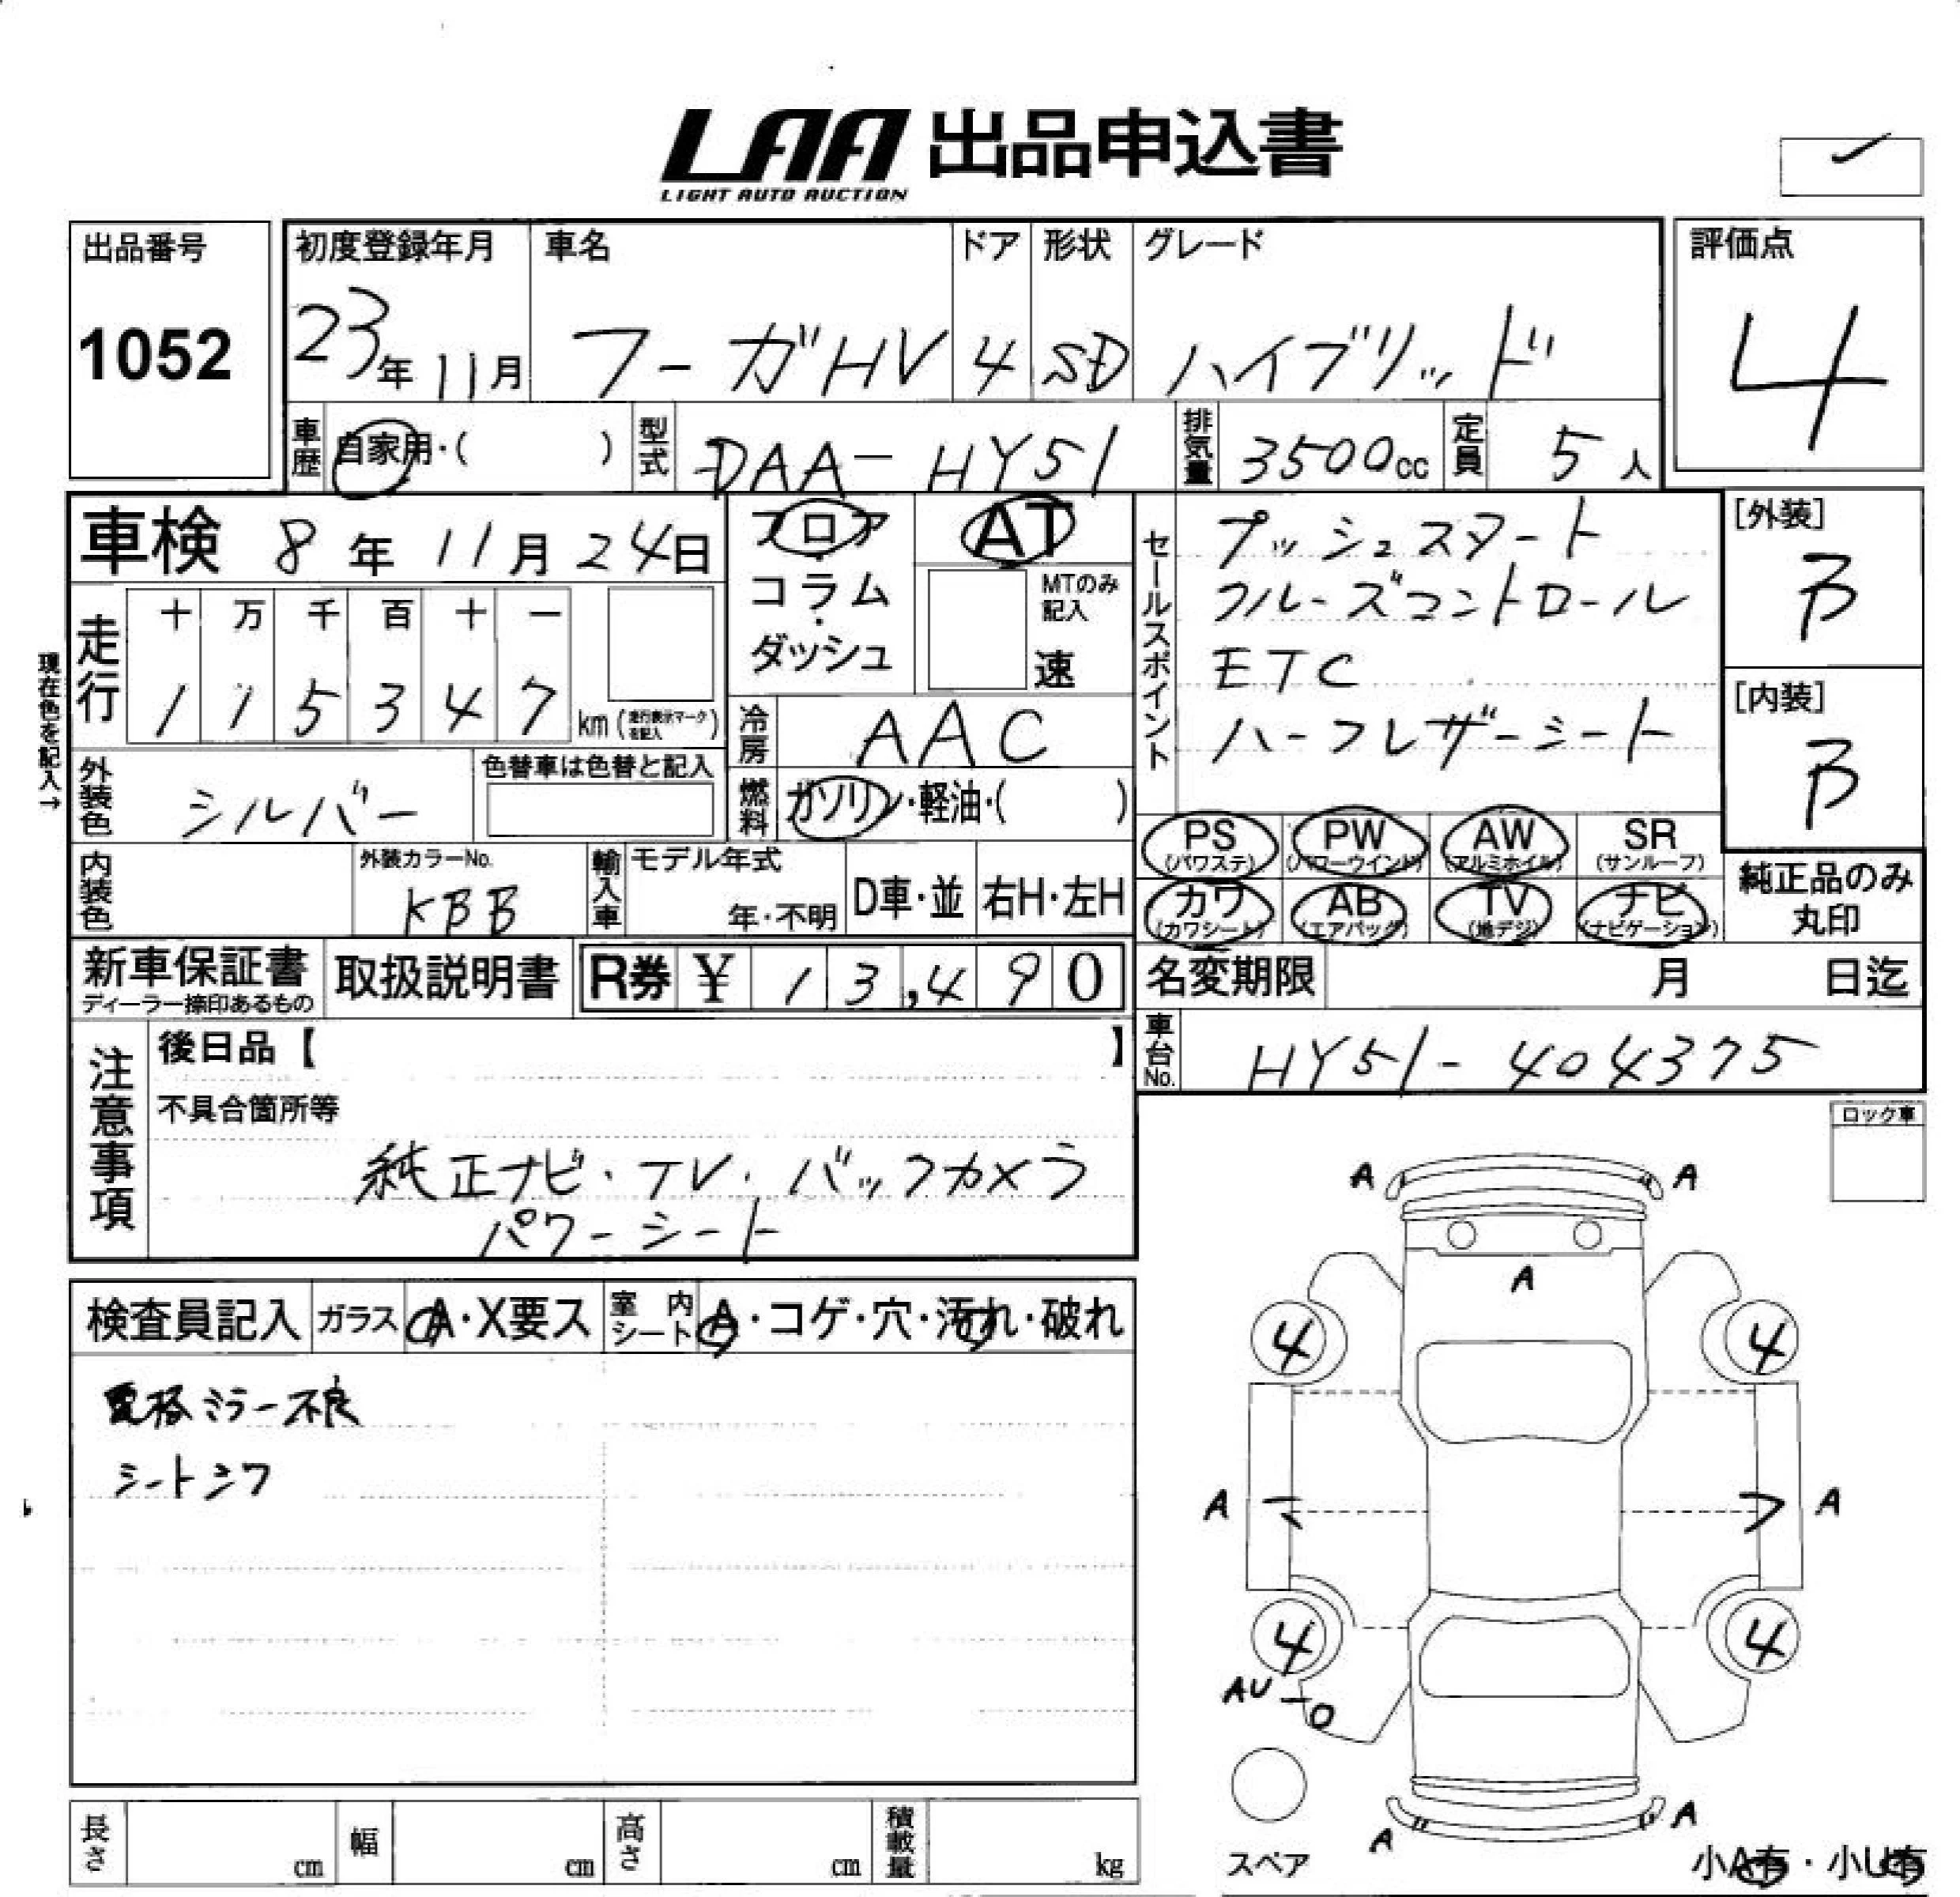 LAA 出品申込書
LIGHT AUTO AUCTION
出品番号
1052
初度登録年月
23年11月
車名
フーガHV
ドア
4
形状
SD
グレード
ハイブリッド
評価点
4
車歴 自家用・( )
型式 DAA-HY51
排気量 3500cc
定員 5人
車検 8年11月24日
フロア・コラム・ダッシュ
AT
MTのみ記入
速
セールスポイント
プッシュスタート
クルーズコントロール
ETC
ハーフレザーシート
[外装]
B
[内装]
B
現在色を記入→
走行
十 万 千 百 十 一
1 1 5 3 4 7 km (走行表示マークを記入)
冷房 AAC
外装色 シルバー
色替車は色替と記入
燃料 ガソリン・軽油・( )
PS (パワステ)
PW (パワーウインド)
AW (アルミホイル)
SR (サンルーフ)
カワ (カワシート)
AB (エアバッグ)
TV (地デジ)
ナビ (ナビゲーション)
純正品のみ丸印
内装色
外装カラーNo.
KBB
輸入車
モデル年式
年・不明
D車・並
右H・左H
新車保証書
ディーラー捺印あるもの
取扱説明書
R券 ¥ 13,490
名変期限 月 日迄
車台No. HY51-404375
注意事項
後日品【 】
不具合箇所等
純正ナビ・TV・バックカメラ
パワーシート
ロック車
検査員記入
ガラス A・X要ス
室内シート A・コゲ・穴・汚れ・破れ
電格ミラー不良
シートシワ
A A
A
4 4
A A
4 4
AU
A A
スペア
小A有・小U有
長さ cm
幅 cm
高さ cm
積載量 kg